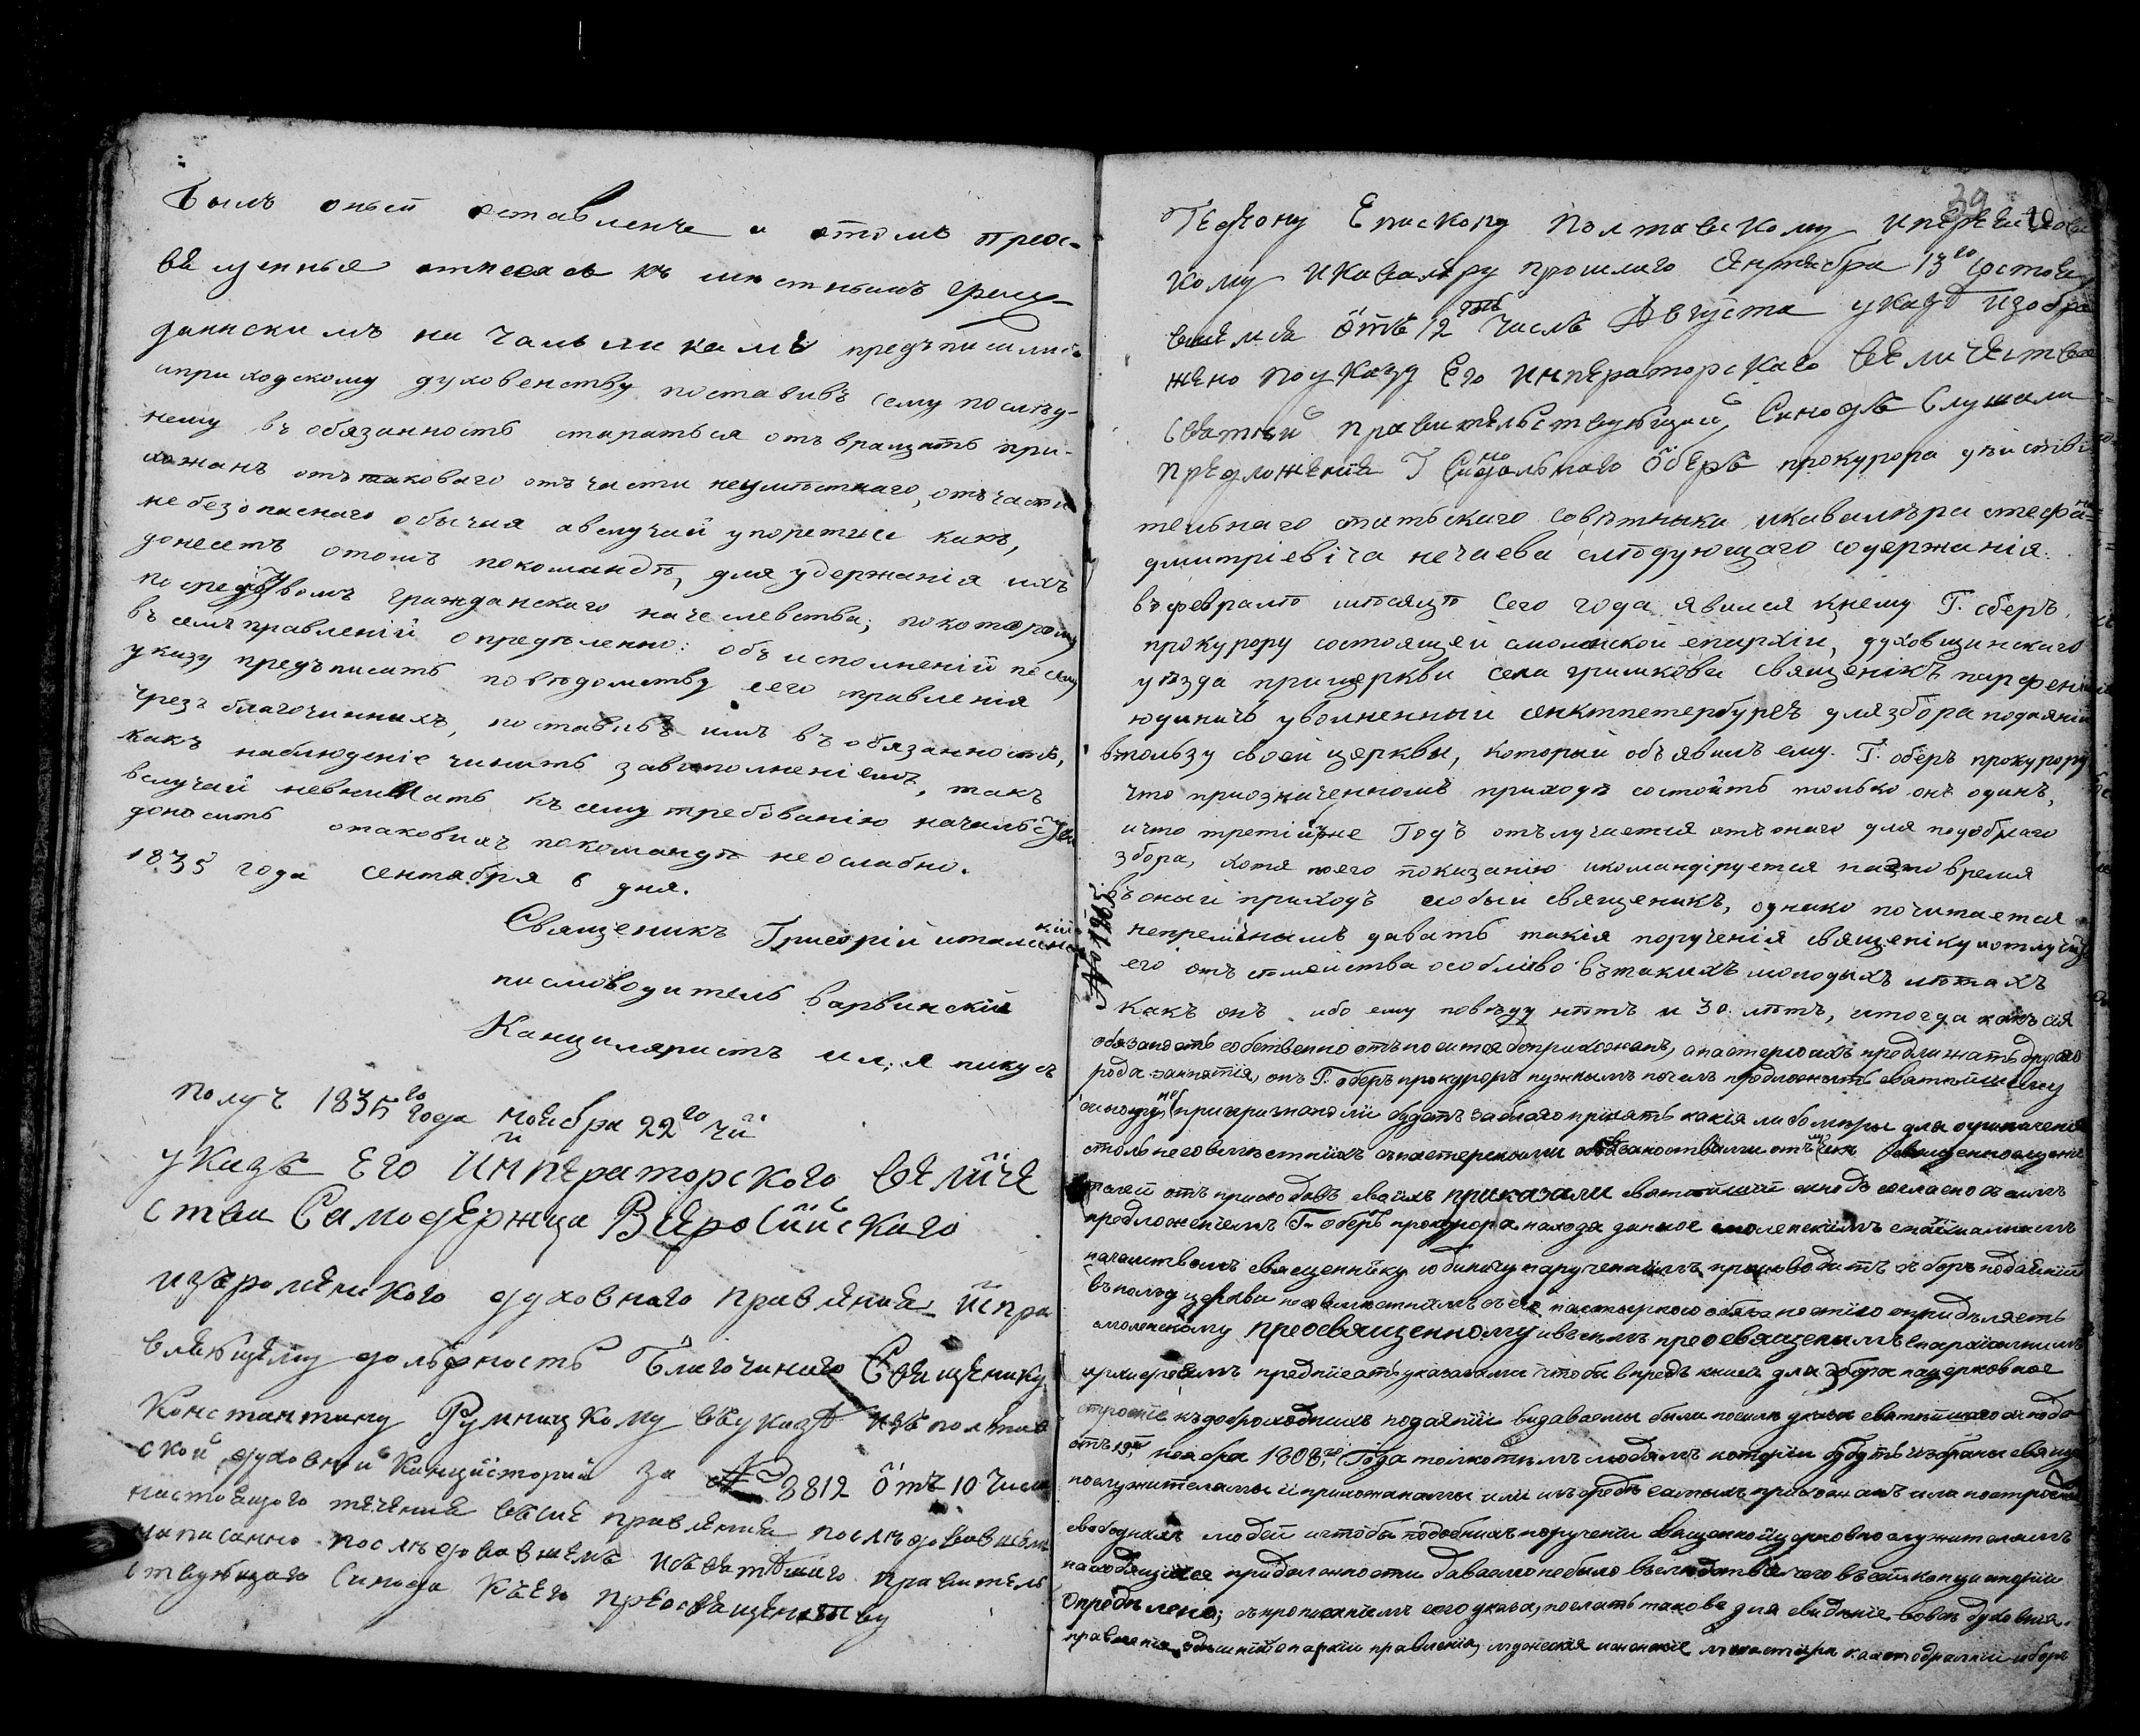 былъ оный оставленъ и отомъ преос-
вященныя отнеслся къ местнымъ граж
данскимъ начальникамъ предъписали
иприходскому духовенству поставивъ сему послѣд-
нему въ обязанность стараться отъвращать при-
хожанъ отътаковаго отъ части неумѣстнаго, отъ части
небезопаснаго обычая авслучай упоретиса какъ,
донесеть отомъ покомандѣ, для удержанія ихъ
посредствомъ гражданского началства; покоторому
въ семъ правленій опредѣленно: объ исполненій посему
указу предъписать повѣдомству сего правленія
чрезъ благочинныхъ, поставивъ имъ въ обязанность,
какъ наблюденіе чинить заисполненіемъ, такъ
вслучай невнимать къ сему требованію начальства
доносить отаковыхъ покомандѣ неослабно.
1835 года сентября 6 дня.
Священикъ Григорій
писмоводитель Варвинскій
Канцеляристъ
получ 1835го года ноября 22го чи
указъ Его Императорского Величе
ства Самодержца Всеросийского
изъроменского духовного правления испра
вляющему должность Благочиного Священику
Константину Румницкому въуказѣ изъ полтав
ской духовной Консисторий за № 8812 отъ 10 числа
настоящого течения въсие правления последовавшемъ
написанно последовавшемъ изъ святейшого правитель
ствующаго Синода къего преосвященству
39
Гедеону Епископу Полтавскому ипереяслов
кому икавалеру прошлаго сентября 13го состояв
шемся отъ 12 числъ Августа указѣ изобра
жено поуказу Его императорскаго величества
святѣй правительствующий Синодъ слушали
предложения Г Синодального Оберъ прокурора дѣйстви
тельнаго статьскаго совѣтника икавалѣра стефа
дмитріевіча нечаева слѣдующаго содержанія.
въ февралѣ мѣсяцѣ сего года явился кнему Г. оберъ
прокурору состоящей смоленской епархіи, духовщинскаго
уѣзда прицеркви села гришкова священикъ парфеній
юдиничъ уволненный санктпетербургъ длязбора подаяній
впользу своей церкви, который объявилъ ему Г. оберъ прокурору
что приозначенномъ приходѣ состоитъ только онъ одинъ,
ичто третійуже годъ отълучается отъ онаго для подобнаго
збора, хотя поего показанію икомандіруется наэто время
въ оный приходъ особый священикъ, однако почитается
непремѣннымъ давать такія порученія священику иотлучать
его отъ семейства особливо втакихъ молодыхъ лѣтахъ
какъ онъ ибо ему повиду нѣтъ и 30. лѣтъ, итогда какъ сія
обязаность собственно отъносится доприхожанъ, апастерю ихъ предлижатъ другого
рода занятія, онъ Г. оберъ прокуроръ нужнымъ почелъ предложить святѣйшему
синоду непризнаноли будетъ заблаго принять какія либо мѣры для ограниченія
столь несовмѣстныхъ съпастерскими обязаностьями отълучекъ священнослужи
телей отъ приходовъ своихъ приказали святѣйшій синодъ согласно съ симъ
предложеніемъ Г. оберъ прокурора находя данное смоленскимъ епархіалнымъ
началствомъ священнику юдиничу порученіемъ производить зборъ подаяній
въ ползу церкви несовмѣстнымъ съ его пастырскою обязаностію опридѣляетъ
смоленскому преосвященному ивсемъ преосвященымъ епархіалнымъ
архиереямъ предписать указами чтобы впредь книги для збора нацерковное
строеніе къдоброхотныхъ подаяній видаваемы были посилѣ указа святѣйшаго синода
отъ 19го ноября 1808го года толкотымъ людямъ которыи будутъ избраны священо
послужителямы иприхожанамы или изъ средѣ самыхъ прихожанъ или постороннихъ
свободныхъ людей ичтобы подобныхъ порученіи священнойцерковнослужителямъ
находящимся придолжности даваемо небыло въслѣдствіе чего въсей консисторіи
Опредѣлено; съпрописаніемъ сего указа, послать таковые для сведенія, вовсѣ духовныя
правленія здешней епархіи правленія, мужеския иженские монастыри каѳедралній соборъ
№ 1985